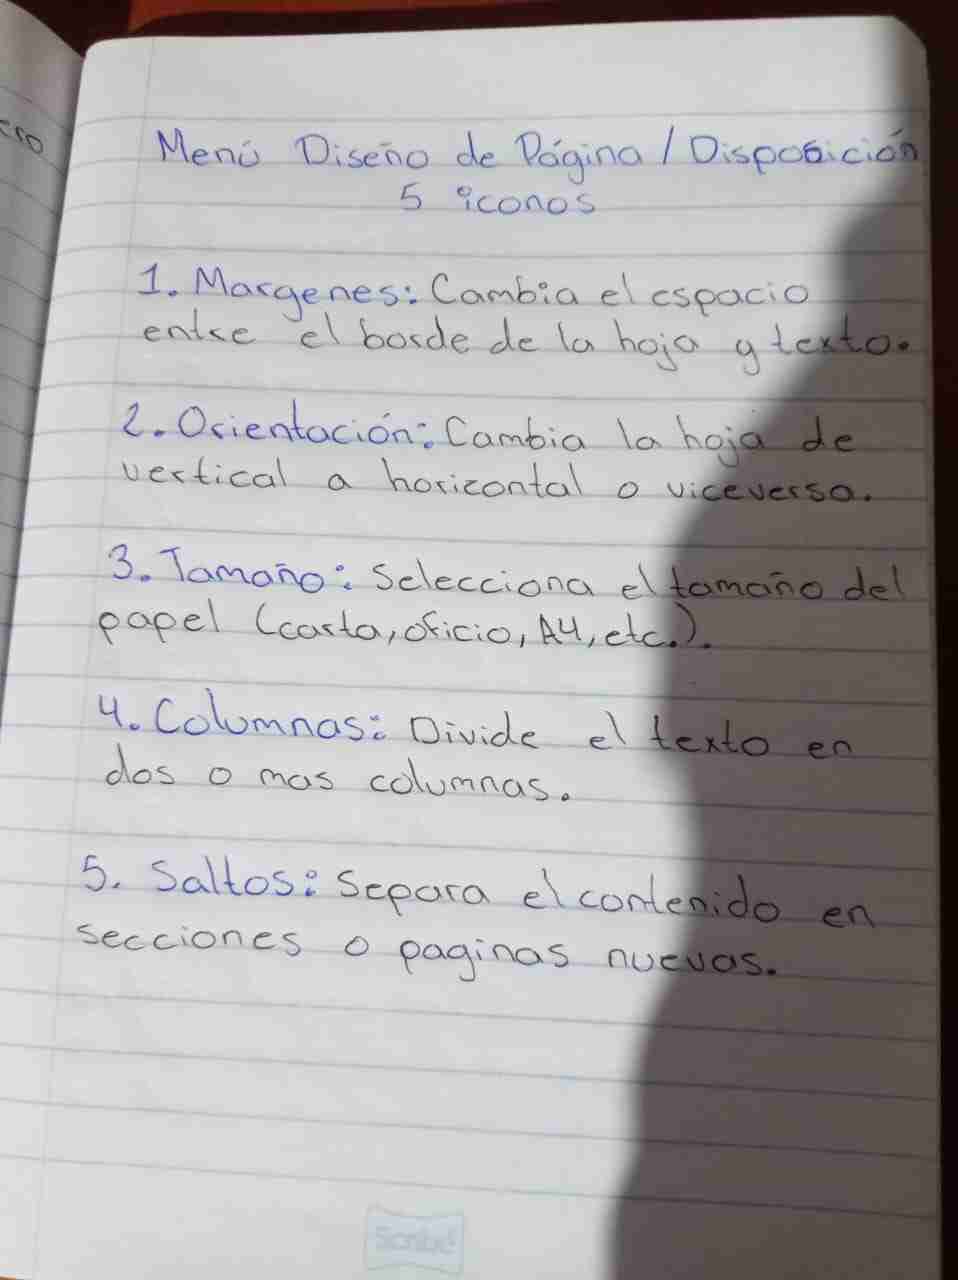 Menú Diseño de Página / Disposición
5 iconos
1. Margenes: Cambia el espacio
entre el borde de la hoja y texto.
2. Orientación: Cambia la hoja de
vertical a horizontal o viceversa.
3. Tamaño: Selecciona el tamaño del
papel (carta, oficio, A4, etc.).
4. Columnas: Divide el texto en
dos o mas columnas.
5. Saltos: Separa el contenido en
secciones o paginas nuevas.
Scribe